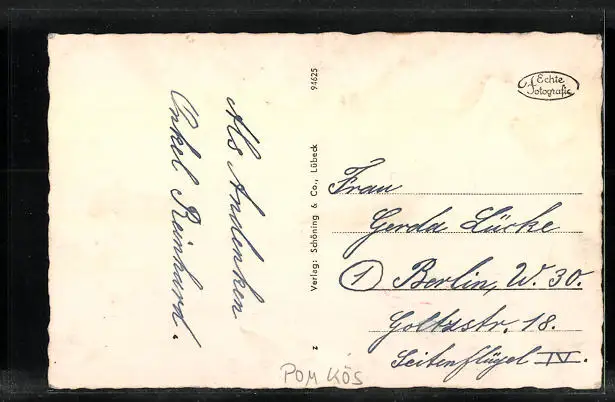 Als Andenken
Onkel Reinhard.
94625
Verlag: Schöning & Co., Lübeck
z
Echte
Fotografie
Frau
Gerda Lücke
1 Berlin, W. 30.
Goltzstr. 18.
Seitenflügel IV.
POM KÖS